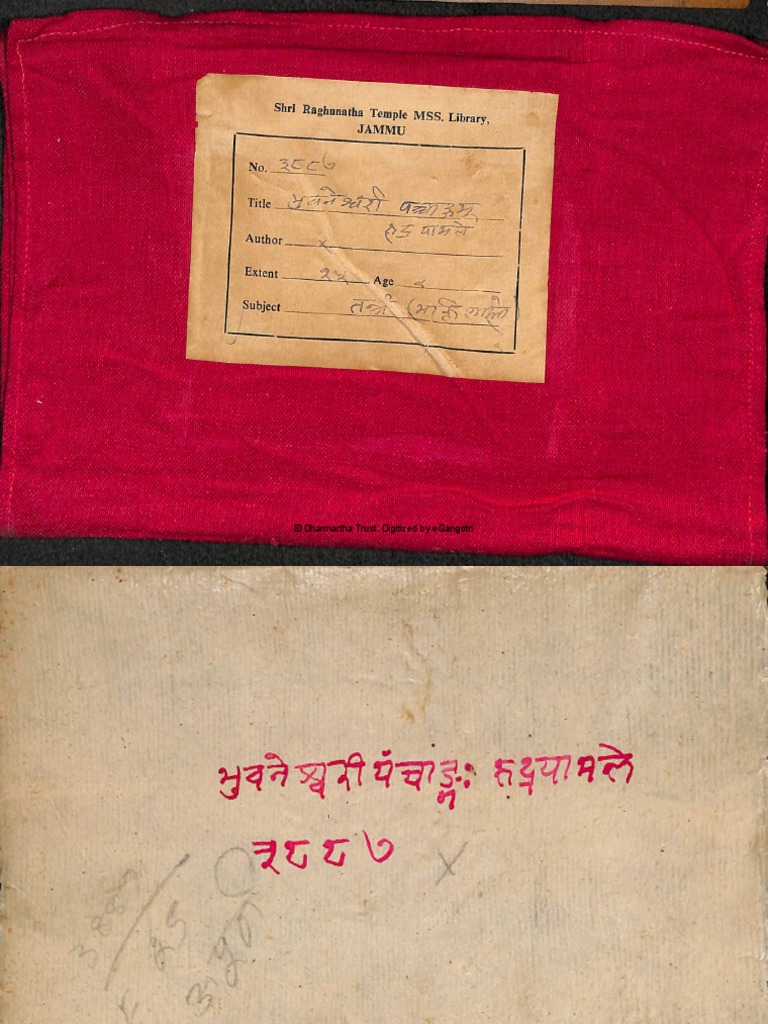 Shri Raghunatha Temple MSS. Library,
JAMMU
No. ३८८७
Title भुवनेश्वरी पञ्चाङ्गम्
रुद्रयामले
Author x
Extent २५ Age x
Subject तन्त्र
© Dharmartha Trust. Digitized by eGangotri
भुवनेश्वरीपंचाङ्गः रुद्रयामले
३८८७ x